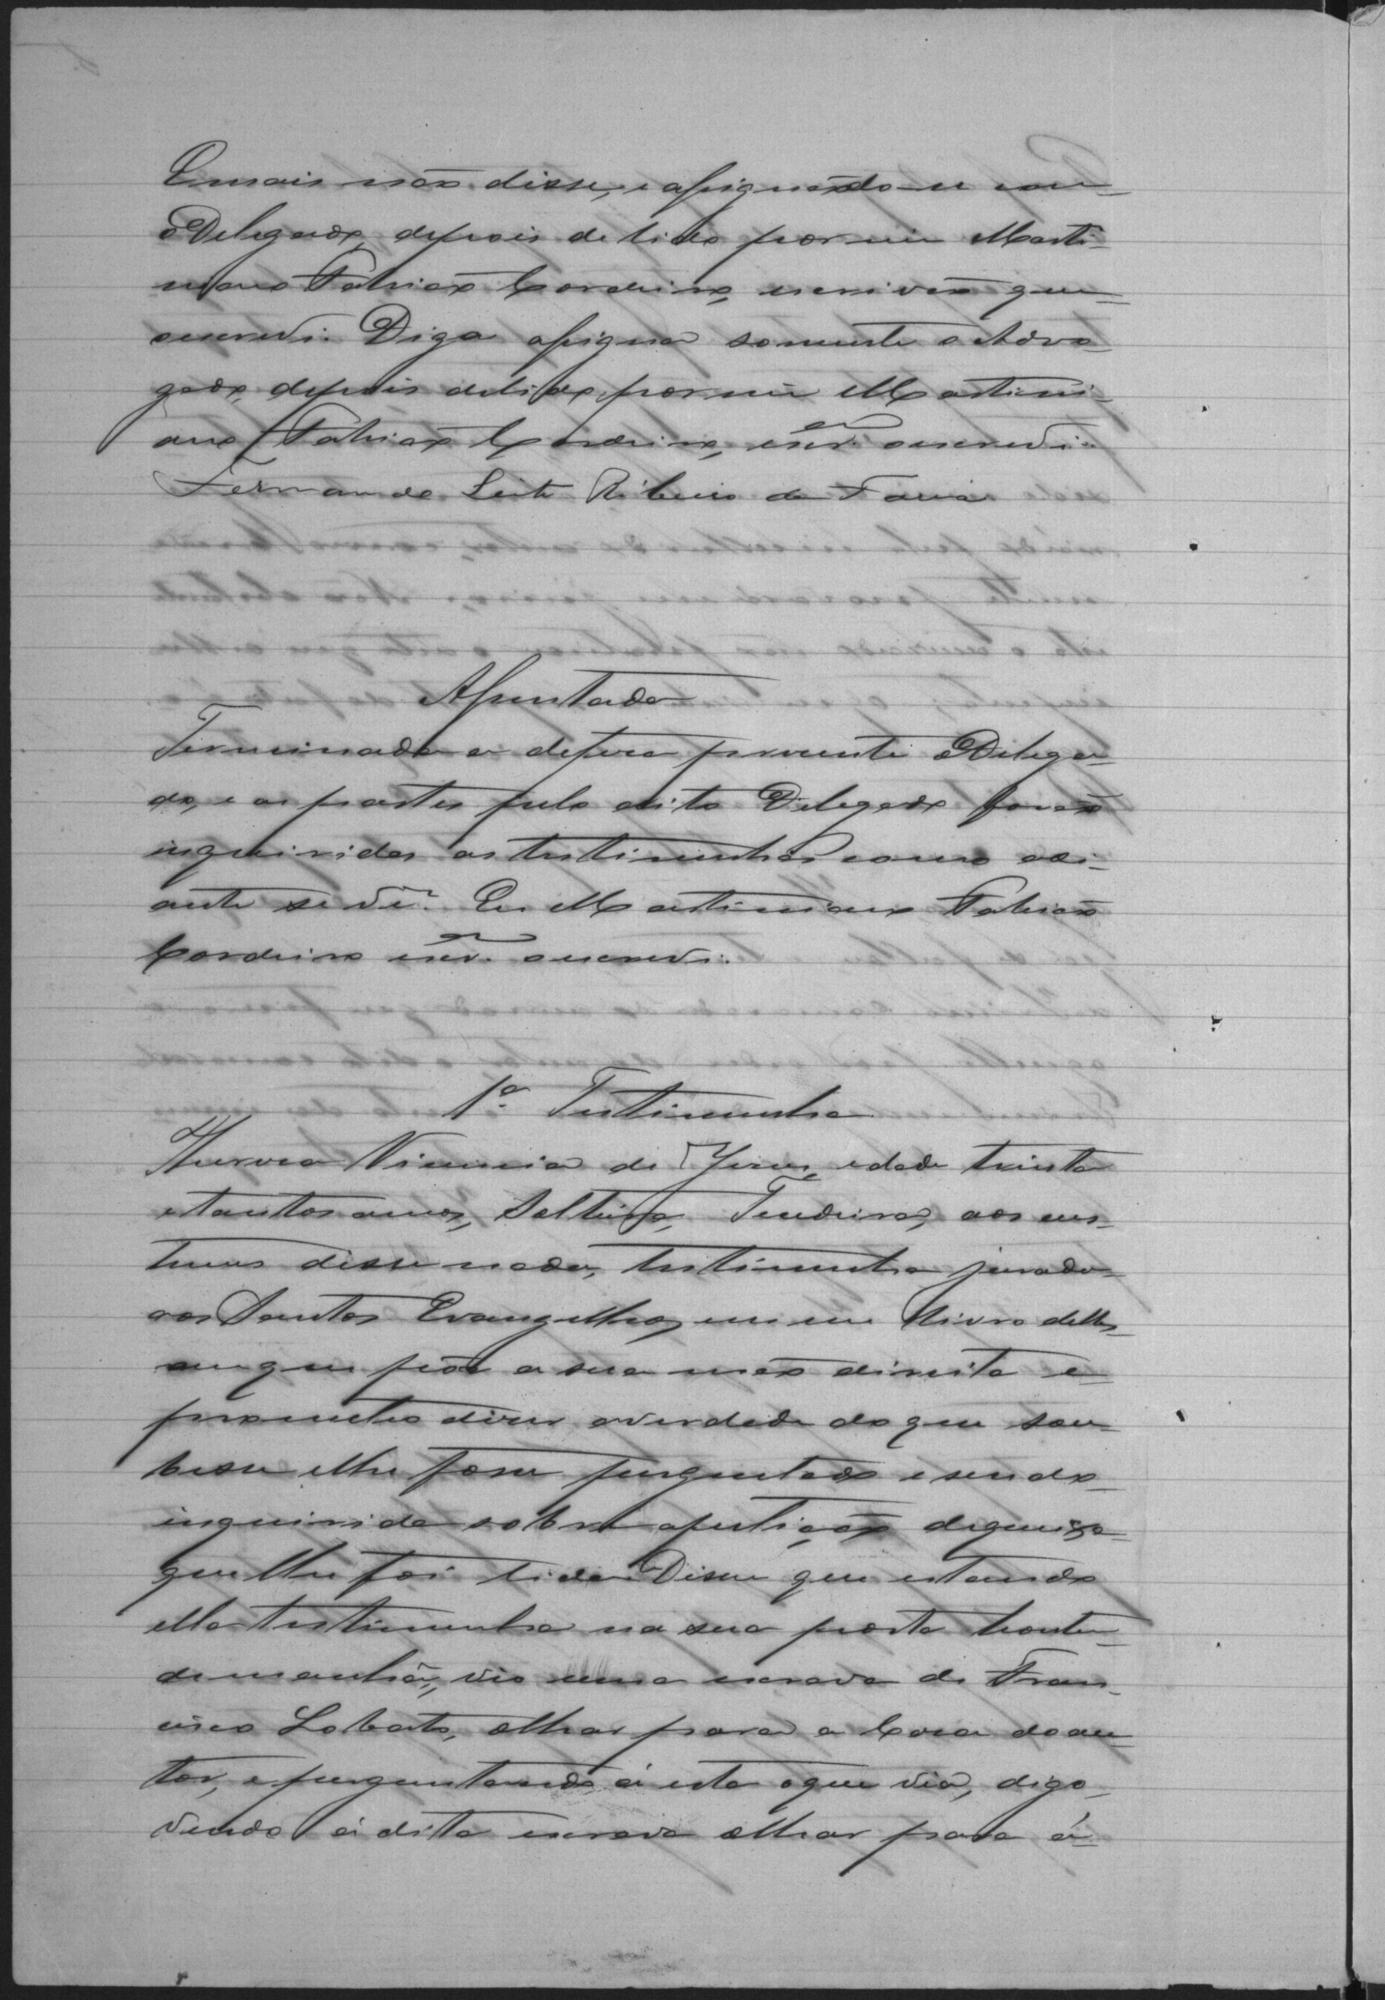 E mais não disse, e assignando-se com
o Delegado, depois de lido por mim Marti-
niano Fabião Cordeiro, escrivão que
oescrevi. Digo assigna somente o Advo-
gado, depois delido por mim Martini-
ano Fabião Cordeiro, escr.ão oescrevi.
Fernando Leite Ribeiro de Faria
Assentada
Terminada a defesa presente o Delega-
do, e as partes pelo dito Delegado forão
inqueridas as testimunhas como adi-
ante se vê. Eu Martiniano Fabião
Cordeiro escr.ão oescrevi.
1ª Testimunha
Vicencia de Jesus, edade trinta
e tantos annos, Solteira, aos cus-
tumes disse nada, testimunha jurada
aos Santos Evangelhos em um Livro delles
em que pôs a sua mão direita e
prometteo dizer averdade doque sou-
besse elhe fosse perguntado e sendo
inquirida sobre apetição dequeixa
quelhe foi lida. Disse que estando
ella testimunha na sua porta hontem
demanhã, vio uma escrava de Fran-
cisco Lobato, olhar para a Casa do au-
tor, e perguntando á esta oque via, digo,
vendo á dita escrava olhar para á